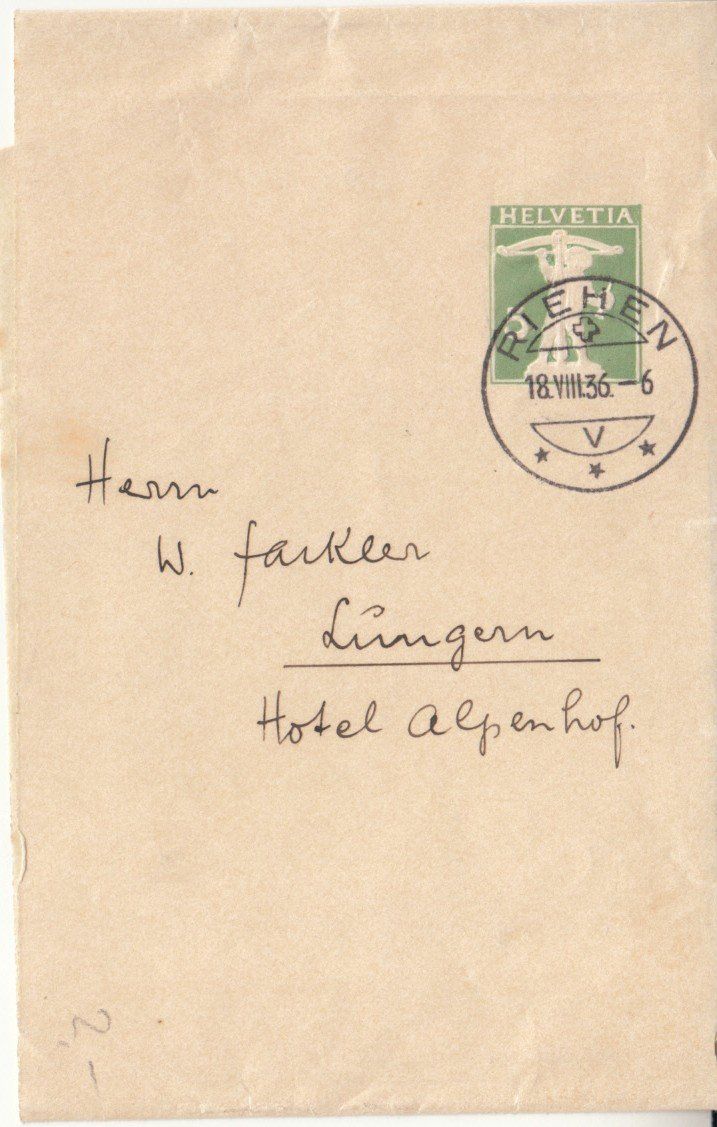 HELVETIA
5
RIEHEN
18.VIII.36.-6
V
Herrn
W. Fackler
Lungern
Hotel Alpenhof.
2.-